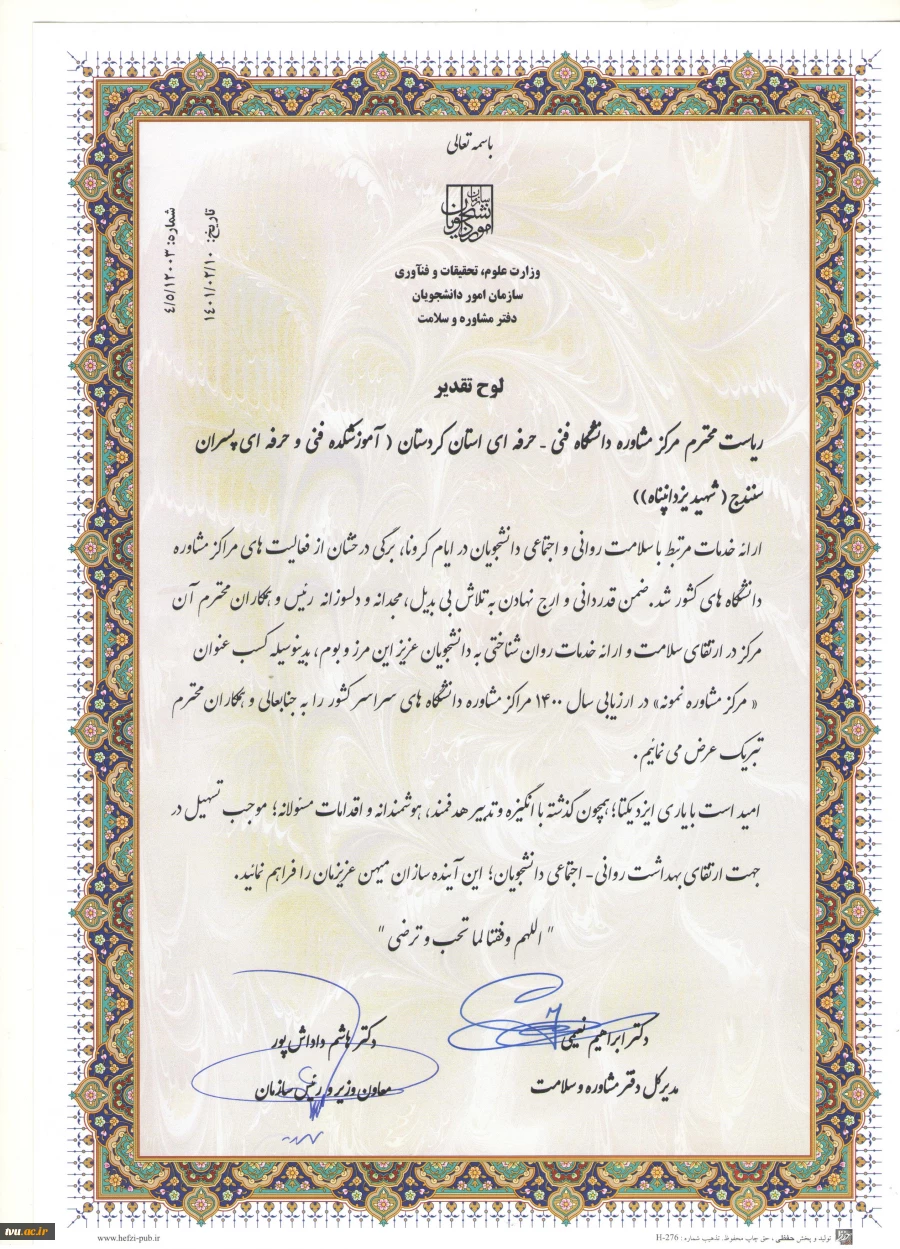 باسمه تعالی
سازمان امور دانشجویان
شماره: ۴/۵/۱۲۰۰۳
تاریخ: ۱۴۰۱/۰۲/۱۰
وزارت علوم، تحقیقات و فنآوری
سازمان امور دانشجویان
دفتر مشاوره و سلامت
لوح تقدیر
ریاست محترم مرکز مشاوره دانشگاه فنی - حرفه ای استان کردستان ( آموزشکده فنی و حرفه ای پسران
سنندج ( شهید یزدانپناه))
ارائه خدمات مرتبط با سلامت روانی و اجتماعی دانشجویان در ایام کرونا، برگی درخشان از فعالیت های مراکز مشاوره
دانشگاه های کشور شد. ضمن قدردانی و ارج نهادن به تلاش بی بدیل، مجدانه و دلسوزانه رئیس و همکاران محترم آن
مرکز در ارتقای سلامت و ارائه خدمات روان شناختی به دانشجویان عزیز این مرز و بوم، بدینوسیله کسب عنوان
« مرکز مشاوره نمونه» در ارزیابی سال ۱۴۰۰ مراکز مشاوره دانشگاه های سراسر کشور را به جنابعالی و همکاران محترم
تبریک عرض می نمائیم.
امید است با یاری ایزد یکتا؛ همچون گذشته با انگیزه و تدبیر هدفمند، هوشمندانه و اقدامات مسئولانه؛ موجب تسهیل در
جهت ارتقای بهداشت روانی - اجتماعی دانشجویان؛ این آینده سازان میهن عزیزمان را فراهم نمائید.
" اللهم وفقنا لما تحب و ترضی "
دکتر ابراهیم نعیمی
مدیرکل دفتر مشاوره و سلامت
دکتر هاشم داداش پور
معاون وزیر و رئیس سازمان
تولید و پخش حفظی ، حق چاپ محفوظ. تذهیب شماره : H-276
www.hefzi-pub.ir
tvu.ac.ir